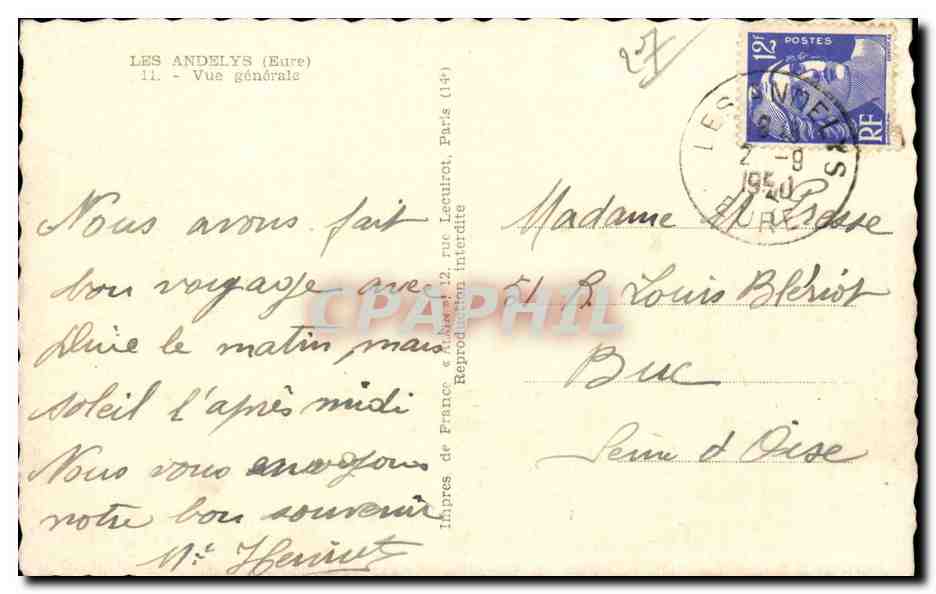 LES ANDELYS (Eure)
11. - Vue générale
27
12F
POSTES
RF
LES ANDELYS
2 -9
1950
EURE
Nous avons fait
bon voyage avec
pluie le matin, mais
soleil l'après midi
Nous vous envoyons
notre bon souvenir
Impres de France 12, rue Lecuirot, Paris (14e)
Reproduction interdite
Madame Presse
51 R. Louis Blériot
Buc
Seine d'Oise
CPAPHIL